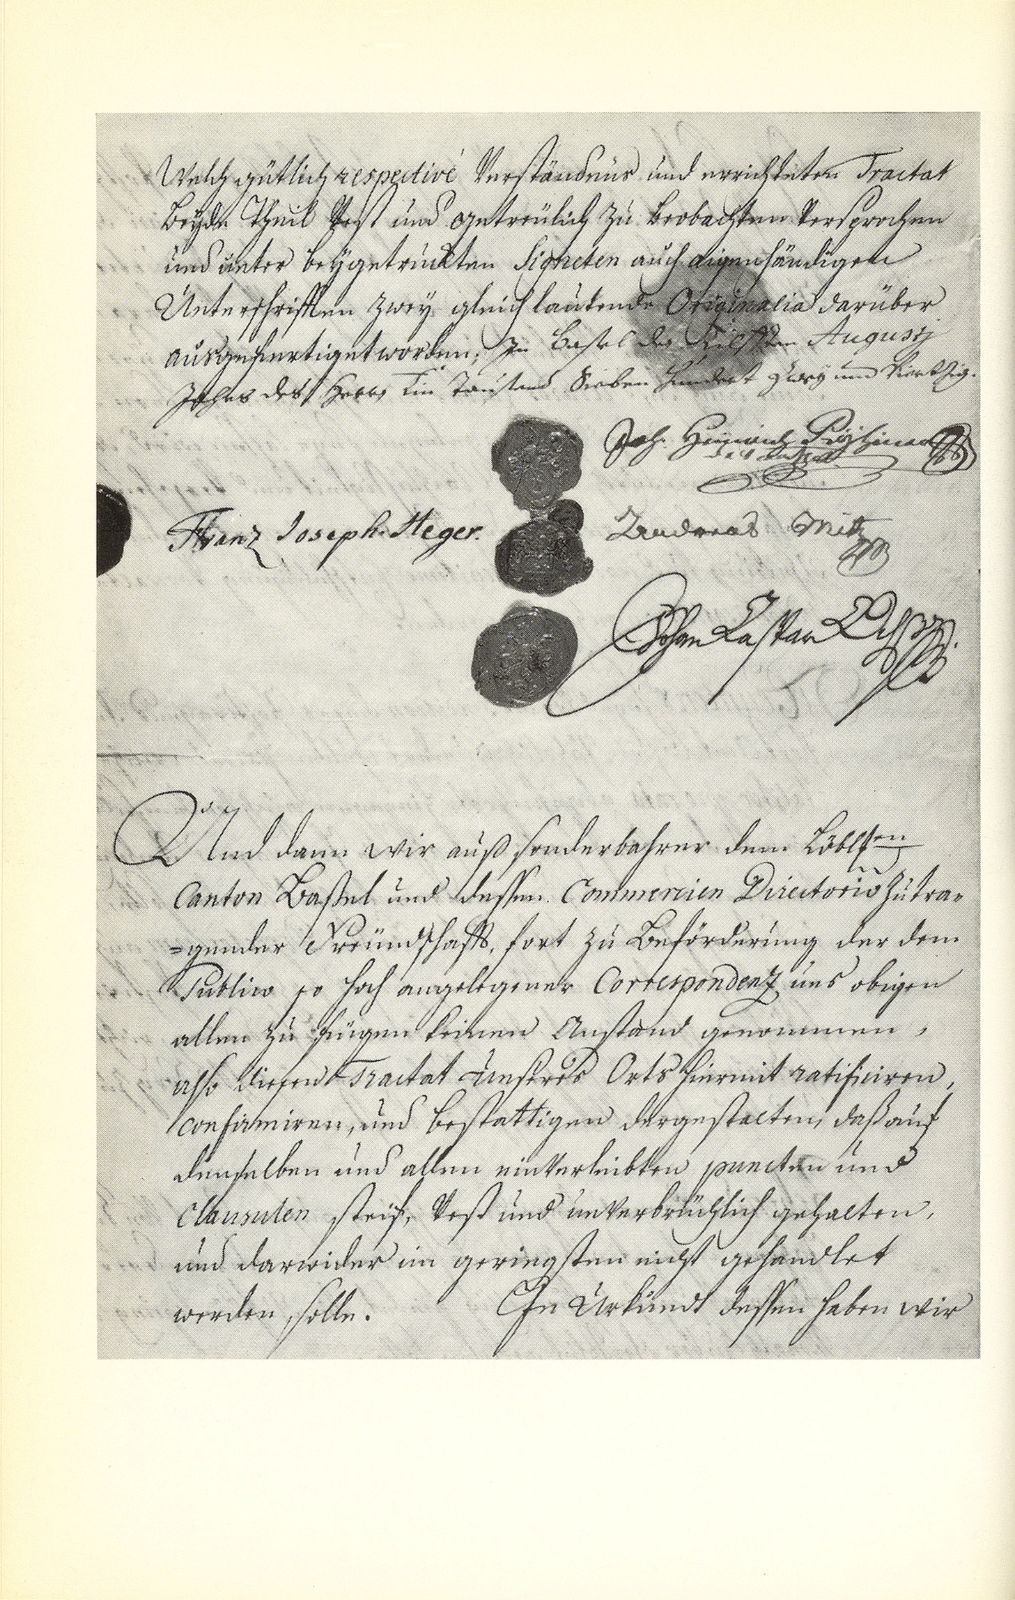 Welch gütlich respective Verständnus und errichteten Tractat
Beyde Theil Vest und getreülich zu beobachten versprochen
und unter beygetruckten Signeten auch eigenhändigen
Unterschrifften zwey gleich lautende Originalia darüber
ausgefertiget worden. In Basel den Augusti
Jahrs des Herrn Ein Tausend Sieben Hundert Zwey und Viertzig.
Joh. Heinrich
Franz Joseph Heger.
Andreas Mitz
Johan Caspar
Und dann wir auß sonderbahrer dem Löbl.en
Canton Baßel und dessen Commercien Directorio zutra-
=gender Freündschafft, fort zu Beförderung der dem
Publico so hoch angelegener Correspondenz uns obigen
allen zu fügen keinen Anstand genommen,
alß diesen Tractat Unsres Orts hiermit ratificiren,
confirmiren, und bestättigen dergestalten, daß auf
denselben und allen einverleibten puncten und
Clausulen steif, Vest und unverbrüchlich gehalten,
und darwider im geringsten nicht gehandlet
werden solle. In Urkundt dessen haben wir